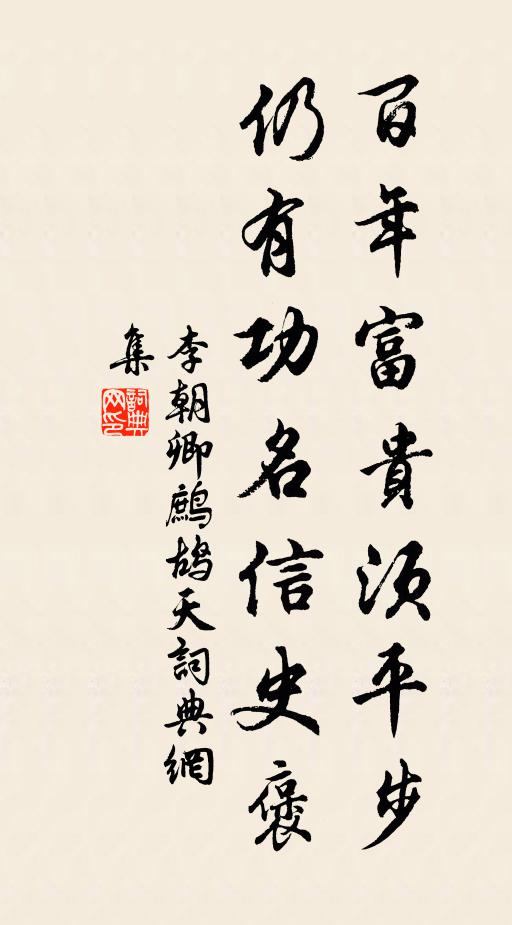 百年富貴須平步
仍有功名信史褒
李朝卿鷓鴣天詞典網
集
詞典
网印